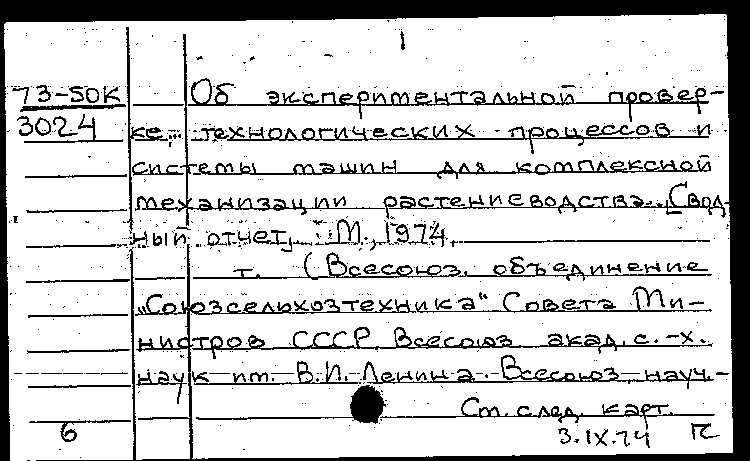 73-50К Об экспериментальной провер-
3024 ке технологических процессов и
системы машин для комплексной
механизации растениеводства. [Свод-
ный отчет, М., 1974.
т. (Всесоюз. объединение
„Союзсельхозтехника" Совета Ми-
нистров СССР. Всесоюз. акад. с.-х.
наук им. В.И. Ленина. Всесоюз. науч.-
См. след. карт.
6 3.IX.74